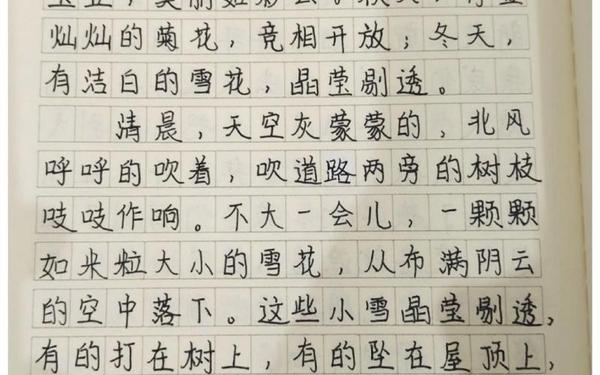 美丽如彩云。秋天，有金
灿灿的菊花，竞相开放；冬天，
有洁白的雪花，晶莹剔透。
清晨，天空灰蒙蒙的，北风
呼呼的吹着，吹道路两旁的树枝
吱吱作响。不大一会儿，一颗颗
如米粒大小的雪花，从布满阴云
的空中落下。这些小雪晶莹剔透，
有的打在树上，有的坠在屋顶上，